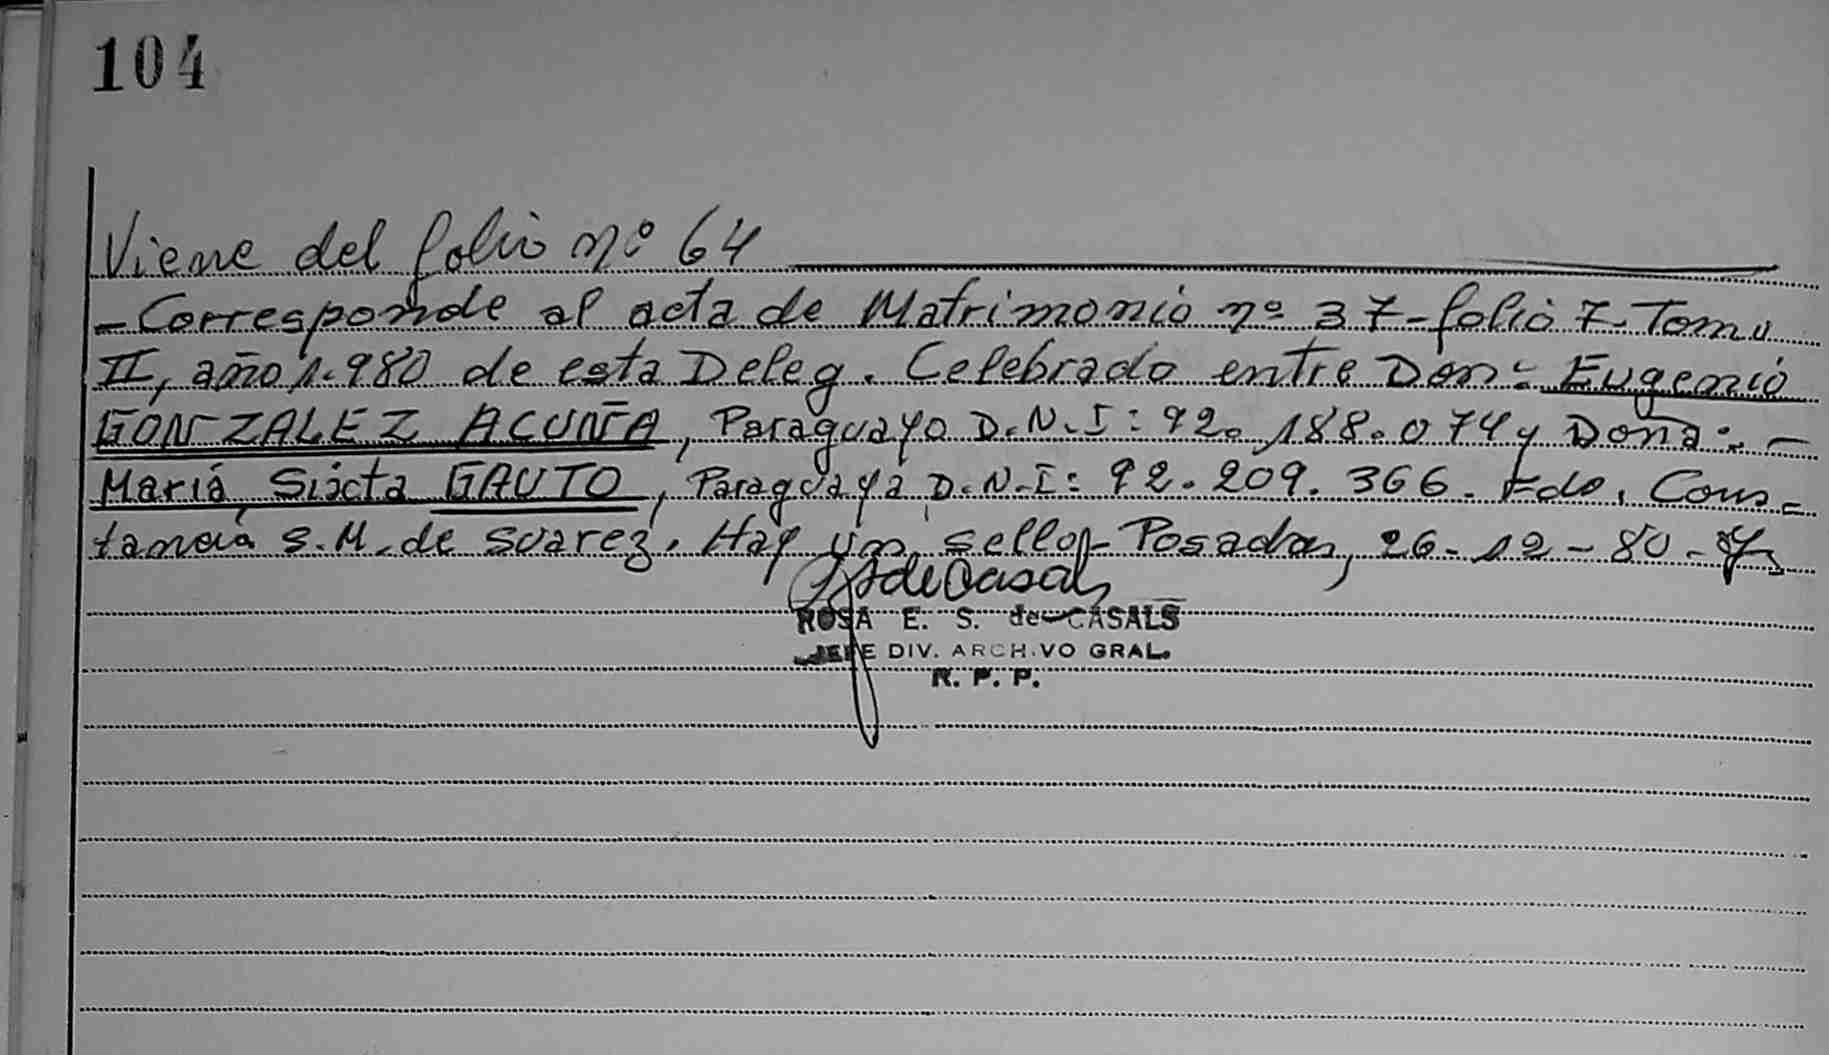 104
Viene del folio nº 64
- Corresponde al acta de Matrimonio nº 37 - folio 7 - Tomo
II, año 1.980 de esta Deleg. Celebrado entre Don: Eugenio
GONZALEZ ACUÑA, Paraguayo D.N.I: 92.188.074 y Doña: -
María Sixta GAUTO, Paraguaya D.N.I: 92.209.366. Fdo. Cons-
tancia S.M. de Suarez. Hay un sello - Posadas, 26-12-80 -
ROSA E. S. de CASALS
JEFE DIV. ARCHIVO GRAL.
R. P. P.